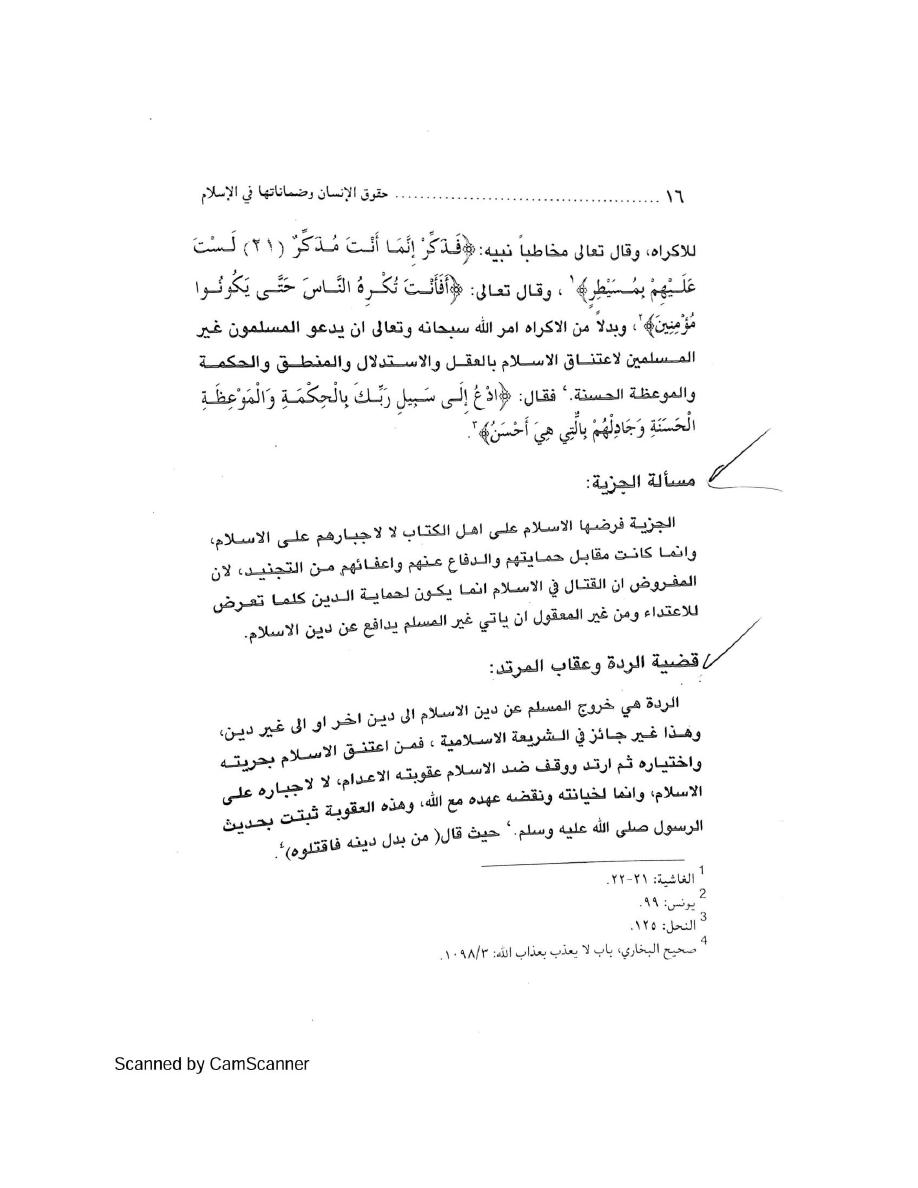 ١٦ ............................................ حقوق الإنسان وضماناتها في الإسلام
للاكراه، وقال تعالى مخاطباً نبيه: ﴿فَذَكِّرْ إِنَّمَا أَنْتَ مُذَكِّرٌ (٢١) لَسْتَ
عَلَيْهِمْ بِمُسَيْطِرٍ﴾١ ، وقال تعالى: ﴿أَفَأَنْتَ تُكْرِهُ النَّاسَ حَتَّى يَكُونُوا
مُؤْمِنِينَ﴾٢، وبدلاً من الاكراه امر الله سبحانه وتعالى ان يدعو المسلمون غير
المسلمين لاعتناق الاسلام بالعقل والاستدلال والمنطق والحكمة
والموعظة الحسنة.‘ فقال: ﴿ادْعُ إِلَى سَبِيلِ رَبِّكَ بِالْحِكْمَةِ وَالْمَوْعِظَةِ
الْحَسَنَةِ وَجَادِلْهُمْ بِالَّتِي هِيَ أَحْسَنُ﴾٣.
مسألة الجزية:
الجزية فرضها الاسلام على اهل الكتاب لا لاجبارهم على الاسلام،
وانما كانت مقابل حمايتهم والدفاع عنهم واعفائهم من التجنيد، لان
المفروض ان القتال في الاسلام انما يكون لحماية الدين كلما تعرض
للاعتداء ومن غير المعقول ان ياتي غير المسلم يدافع عن دين الاسلام.
قضية الردة وعقاب المرتد:
الردة هي خروج المسلم عن دين الاسلام الى دين اخر او الى غير دين،
وهذا غير جائز في الشريعة الاسلامية ، فمن اعتنق الاسلام بحريته
واختياره ثم ارتد ووقف ضد الاسلام عقوبته الاعدام، لا لاجباره على
الاسلام، وانما لخيانته ونقضه عهده مع الله، وهذه العقوبة ثبتت بحديث
الرسول صلى الله عليه وسلم.‘ حيث قال( من بدل دينه فاقتلوه)٤.
1 الغاشية: ٢١-٢٢.
2 يونس: ٩٩.
3 النحل: ١٢٥.
4 صحيح البخاري، باب لا يعذب بعذاب الله: ١٠٩٨/٣.
Scanned by CamScanner